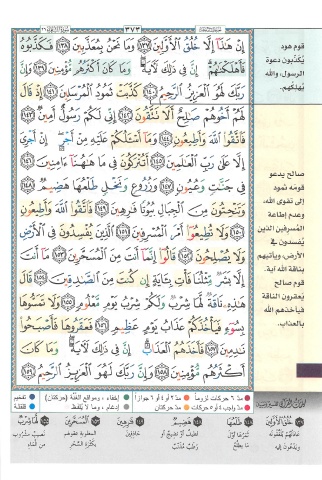 ٣٧٣
إِنْ هَٰذَآ إِلَّا خُلُقُ ٱلْأَوَّلِينَ ١٣٧ وَمَا نَحْنُ بِمُعَذَّبِينَ ١٣٨ فَكَذَّبُوهُ
فَأَهْلَكْنَٰهُمْ إِنَّ فِى ذَٰلِكَ لَءَايَةً وَمَا كَانَ أَكْثَرُهُم مُّؤْمِنِينَ ١٣٩ وَإِنَّ
رَبَّكَ لَهُوَ ٱلْعَزِيزُ ٱلرَّحِيمُ ١٤٠ كَذَّبَتْ ثَمُودُ ٱلْمُرْسَلِينَ ١٤١ إِذْ قَالَ
لَهُمْ أَخُوهُمْ صَٰلِحٌ أَلَا تَتَّقُونَ ١٤٢ إِنِّى لَكُمْ رَسُولٌ أَمِينٌ ١٤٣
فَٱتَّقُوا۟ ٱللَّهَ وَأَطِيعُونِ ١٤٤ وَمَآ أَسْـَٔلُكُمْ عَلَيْهِ مِنْ أَجْرٍ إِنْ أَجْرِىَ
إِلَّا عَلَىٰ رَبِّ ٱلْعَٰلَمِينَ ١٤٥ أَتُتْرَكُونَ فِى مَا هَٰهُنَآ ءَامِنِينَ ١٤٦
فِى جَنَّٰتٍ وَعُيُونٍ ١٤٧ وَزُرُوعٍ وَنَخْلٍ طَلْعُهَا هَضِيمٌ ١٤٨
وَتَنْحِتُونَ مِنَ ٱلْجِبَالِ بُيُوتًا فَٰرِهِينَ ١٤٩ فَٱتَّقُوا۟ ٱللَّهَ وَأَطِيعُونِ
١٥٠ وَلَا تُطِيعُوٓا۟ أَمْرَ ٱلْمُسْرِفِينَ ١٥١ ٱلَّذِينَ يُفْسِدُونَ فِى ٱلْأَرْضِ
وَلَا يُصْلِحُونَ ١٥٢ قَالُوٓا۟ إِنَّمَآ أَنتَ مِنَ ٱلْمُسَحَّرِينَ ١٥٣ مَآ أَنتَ
إِلَّا بَشَرٌ مِّثْلُنَا فَأْتِ بِـَٔايَةٍ إِن كُنتَ مِنَ ٱلصَّٰدِقِينَ ١٥٤ قَالَ
هَٰذِهِۦ نَاقَةٌ لَّهَا شِرْبٌ وَلَكُمْ شِرْبُ يَوْمٍ مَّعْلُومٍ ١٥٥ وَلَا تَمَسُّوهَا
بِسُوٓءٍ فَيَأْخُذَكُمْ عَذَابُ يَوْمٍ عَظِيمٍ ١٥٦ فَعَقَرُوهَا فَأَصْبَحُوا۟
نَٰدِمِينَ ١٥٧ فَأَخَذَهُمُ ٱلْعَذَابُ إِنَّ فِى ذَٰلِكَ لَءَايَةً وَمَا كَانَ
أَكْثَرُهُم مُّؤْمِنِينَ ١٥٨ وَإِنَّ رَبَّكَ لَهُوَ ٱلْعَزِيزُ ٱلرَّحِيمُ ١٥٩
قوم هود
يكذبون دعوة
الرسول، والله
يهلكهم.
صالح يدعو
قومه ثمود
إلى تقوى الله،
وعدم إطاعة
المسرفين الذين
يفسدون في
الأرض، ويأتيهم
بناقة الله آية.
قوم صالح
يعقرون الناقة
فيأخذهم الله
بالعذاب.
مدّ ٦ حركات لزوماً مدّ ٢ أو ٤ أو ٦ جوازاً إخفاء، ومواقع الغُنَّة (حركتان) تفخيم
مدّ واجب ٤ أو ٥ حركات مدّ حركتان إدغام، وما لا يُلفَظ قلقلة
خُلُقُ الأوَّلين
طَلْعُها
هَضِيمٌ
فَارِهِينَ
المُسَحَّرين
لها شِرْبٌ